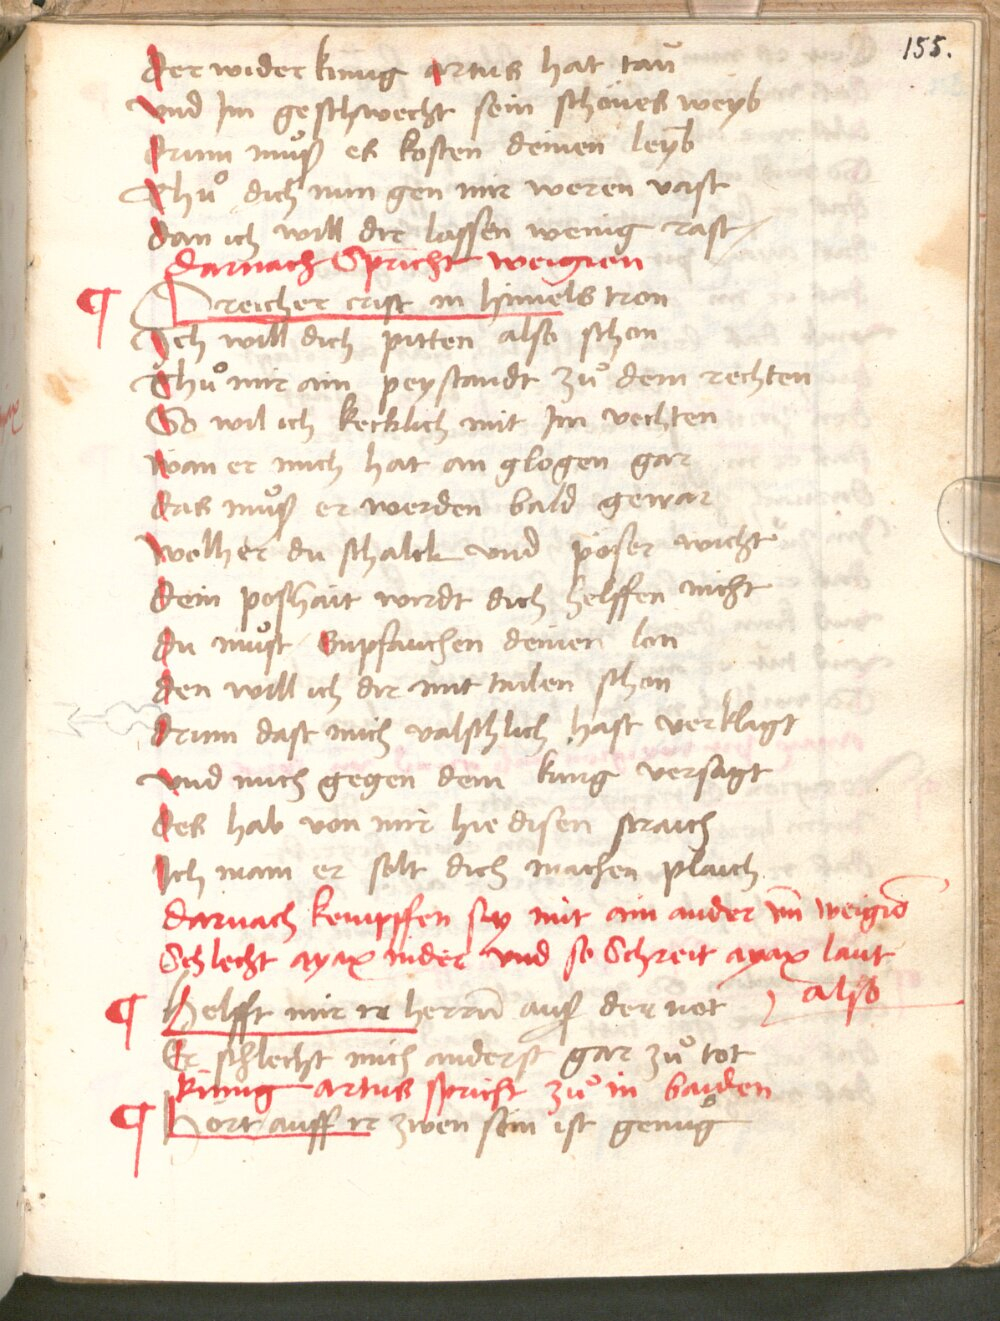 155.
der wider kunig artus hat tan
vnd Im geschwecht sein schönes weyb
drum muͦß es kosten deinen leyb
Thuͦ dich nun gen mir weren vast
dan ich will dir lassen wenig rast
darnach Spricht weigien
O reicher crist in himels tron
Ich will dich pitten also schon
Thuͦ mir ain peystandt zuͦ dem rechten
So wil ich kecklich mit Im vechten
wan er mich hat an glogen gar
das muͦß er werden bald gewar
wolher du schalck vnd poser wicht
dein poshait wirdt dich helffen nicht
du muͦst Enpfauchen deinen lon
den will ich dir mit tailen schon
drum dast mich valschlich hast verklagt
vnd mich gegen dem kung versagt
des hab von mir hie disen straich
Ich main er solt dich machen plaich
darnach kempffen sy mit ain ander vn̄ weigiē
Schlecht ayax nider vnd so Schreit ayax laut
also
Helfft mir ir herrn̄ auß der not
Er schlecht mich anderst gar zuͦ tot
kunig artus spricht zuͦ in baiden
Hört auff ir zwen sein ist genuͦg